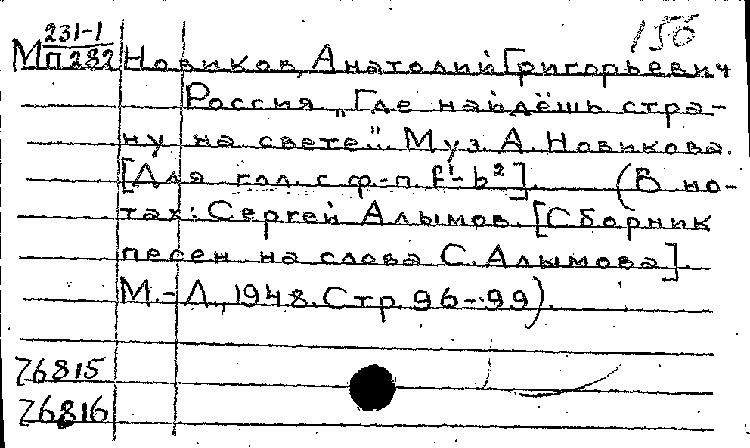 156
М 231-1
П 282 Новиков, Анатолий Григорьевич
Россия „Где найдёшь стра-
ну на свете". Муз. А. Новикова.
[Для гол. с ф-п. f¹-b²]. (В но-
тах: Сергей Алымов. [Сборник
песен на слова С. Алымова].
М.-Л., 1948. Стр. 96-99).
76815
76816